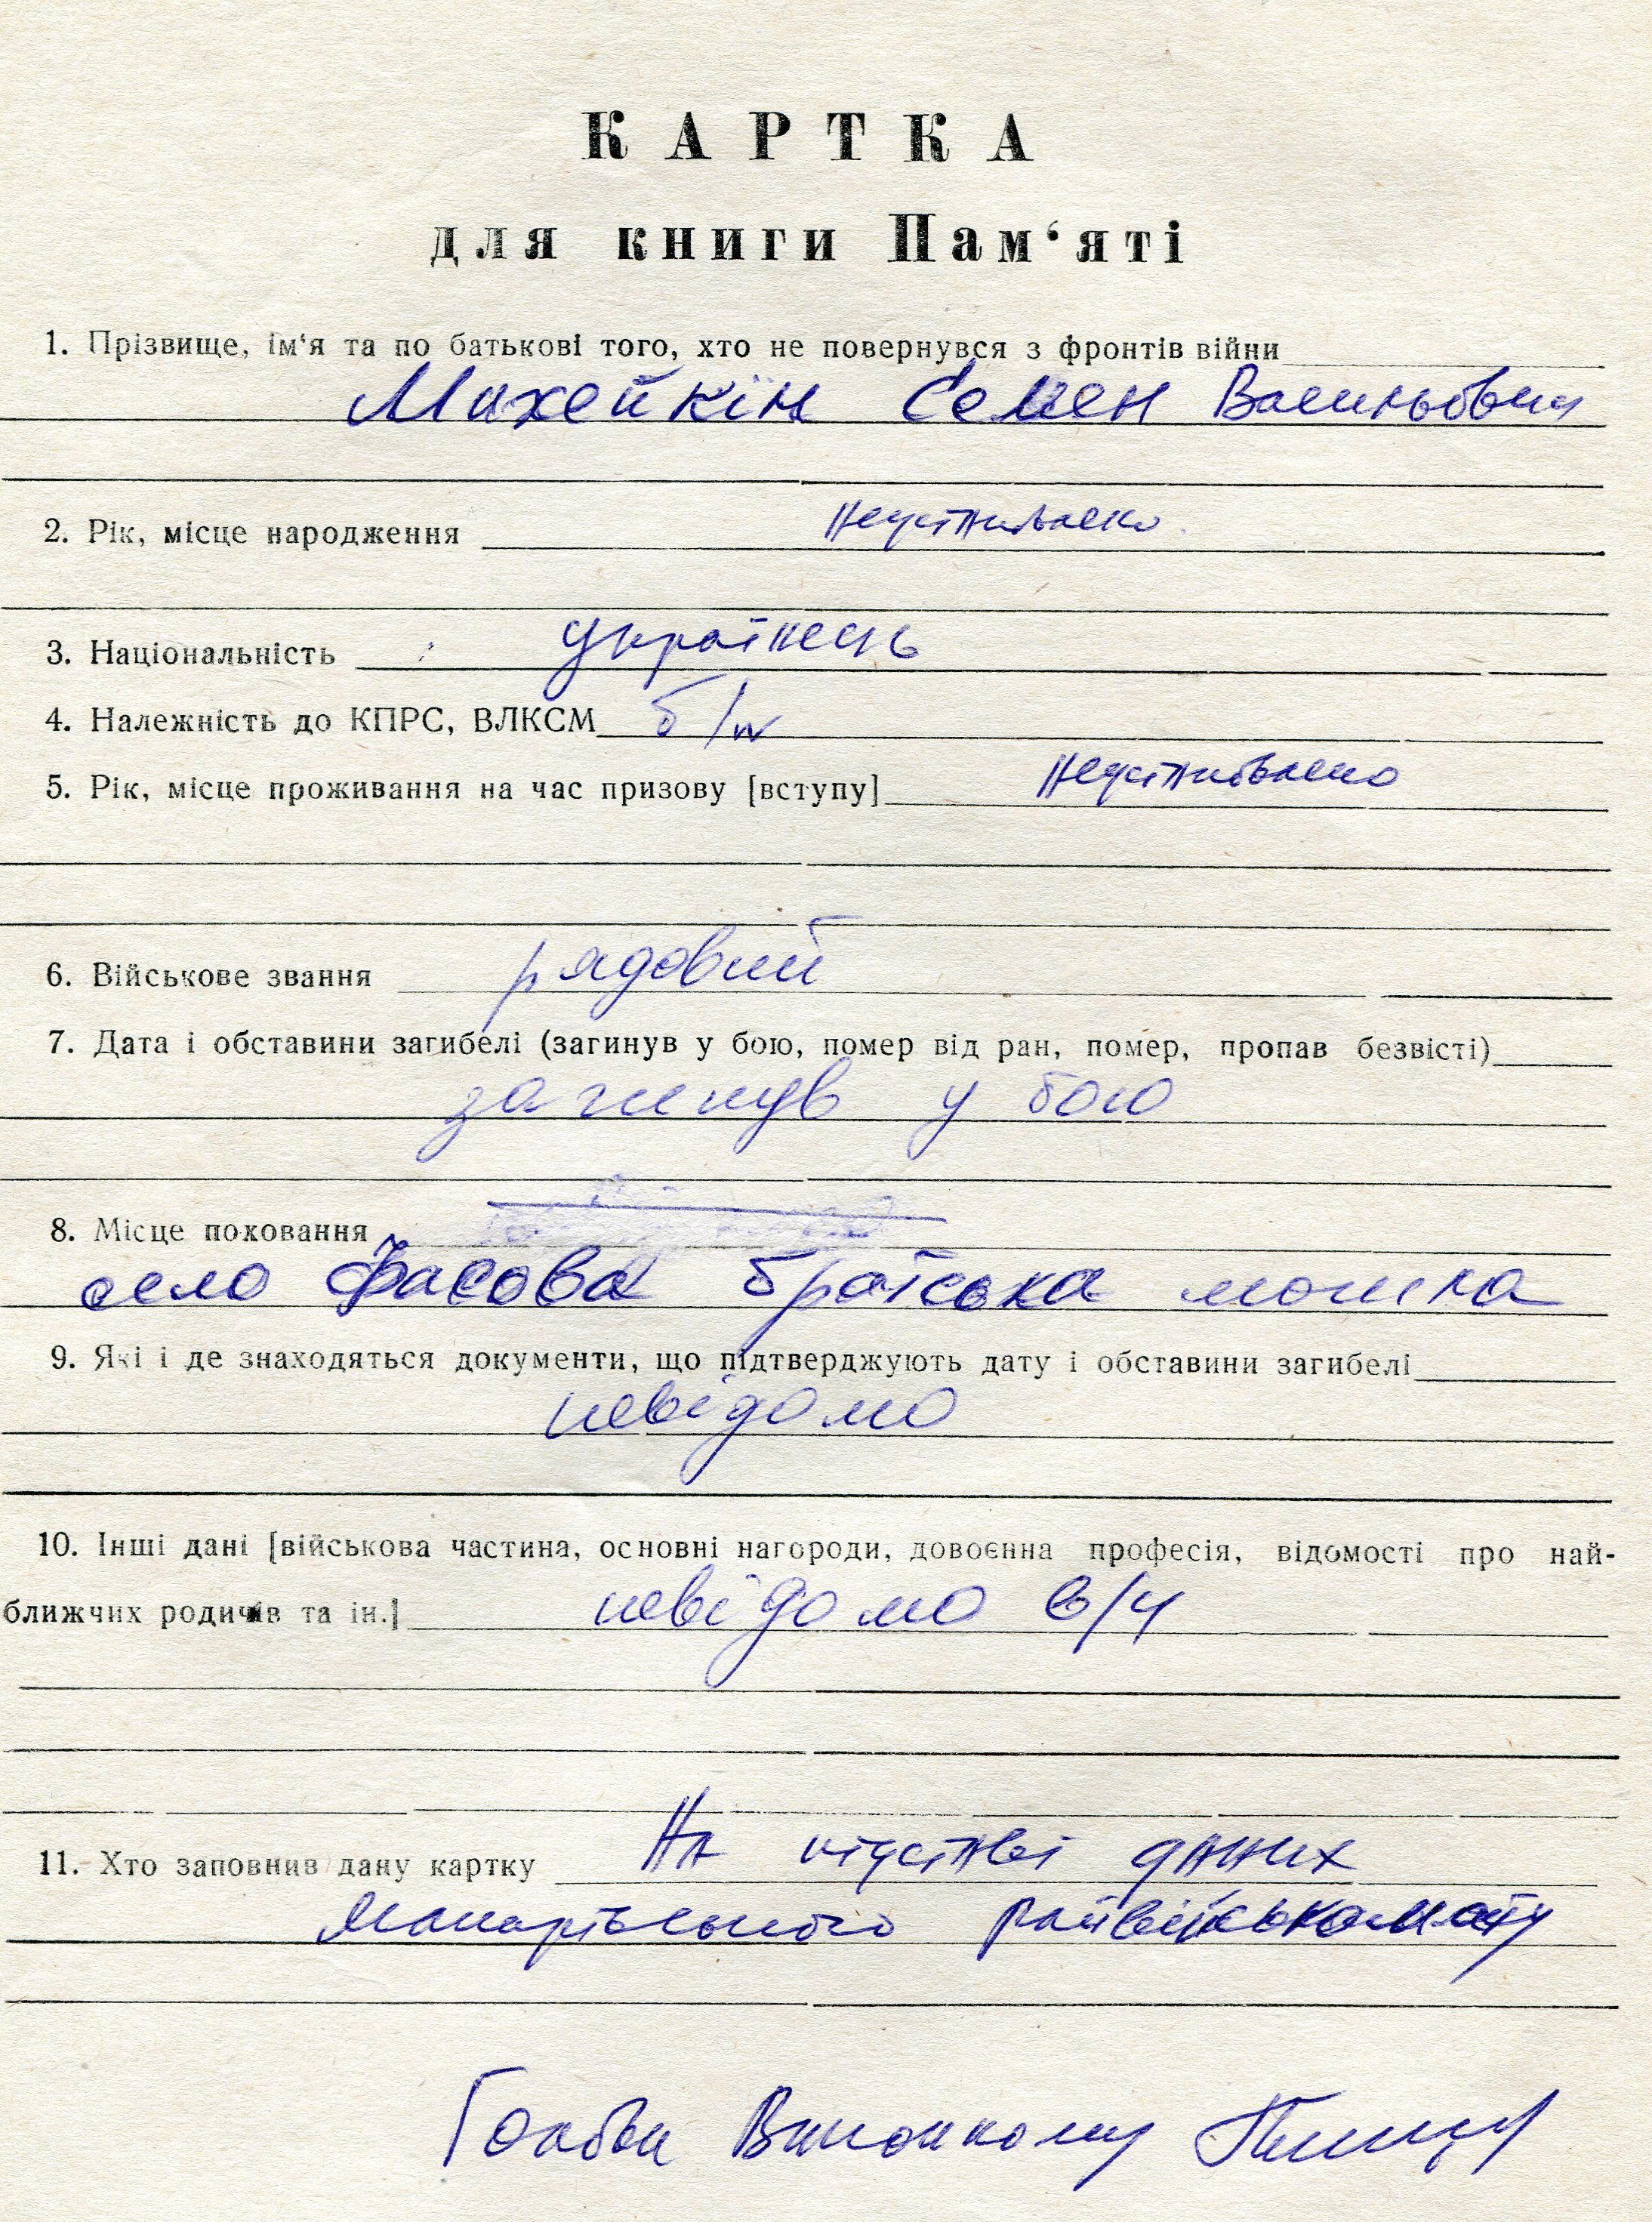 КАРТКА
для книги Пам‘яті
1. Прізвище, ім‘я та по батькові того, хто не повернувся з фронтів війни
Михейкін Семен Васильович
2. Рік, місце народження Неустановлено
3. Національність українець
4. Належність до КПРС, ВЛКСМ б/п
5. Рік, місце проживання на час призову [вступу] Неустановлено
6. Військове звання рядовий
7. Дата і обставини загибелі (загинув у бою, помер від ран, помер, пропав безвісті)
загинув у бою
8. Місце поховання
село Фасова братська могила
9. Які і де знаходяться документи, що підтверджують дату і обставини загибелі
невідомо
10. Інші дані [військова частина, основні нагороди, довоєнна професія, відомості про най-
ближчих родичів та ін.] невідомо в/ч
11. Хто заповнив дану картку На підставі даних
Макарівського райвійськомату
Голова Виконкому